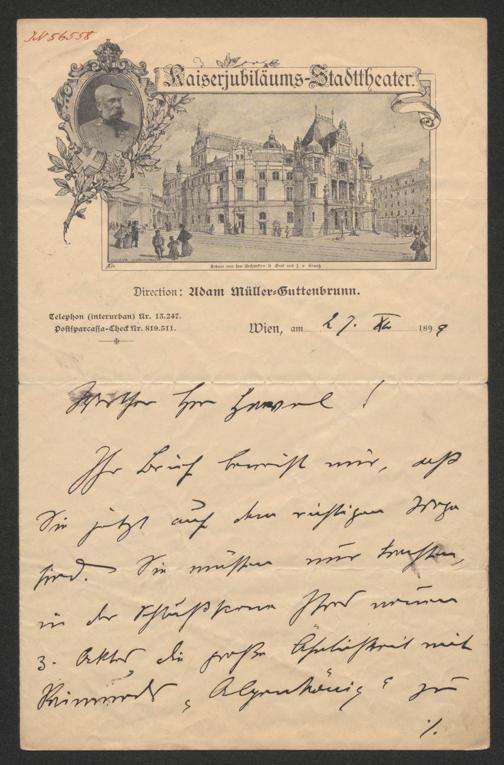 IN 56558
Kaiserjubiläums-Stadttheater.
Direction: Adam Müller-Guttenbrunn.
Telephon (interurban) Nr. 13.247.
Postsparcassa-Check Nr. 819.511.
Wien, am 27. XI. 1899
Werther Herr Hawel!
Ihr Brief beweist mir, daß
Sie jetzt auf dem richtigen Wege
sind. Sie müßen nur trachten,
in der Schlußscene Ihres neuen
3. Aktes die große Ähnlichkeit mit
Raimunds „Alpenkönig“ zu
./.